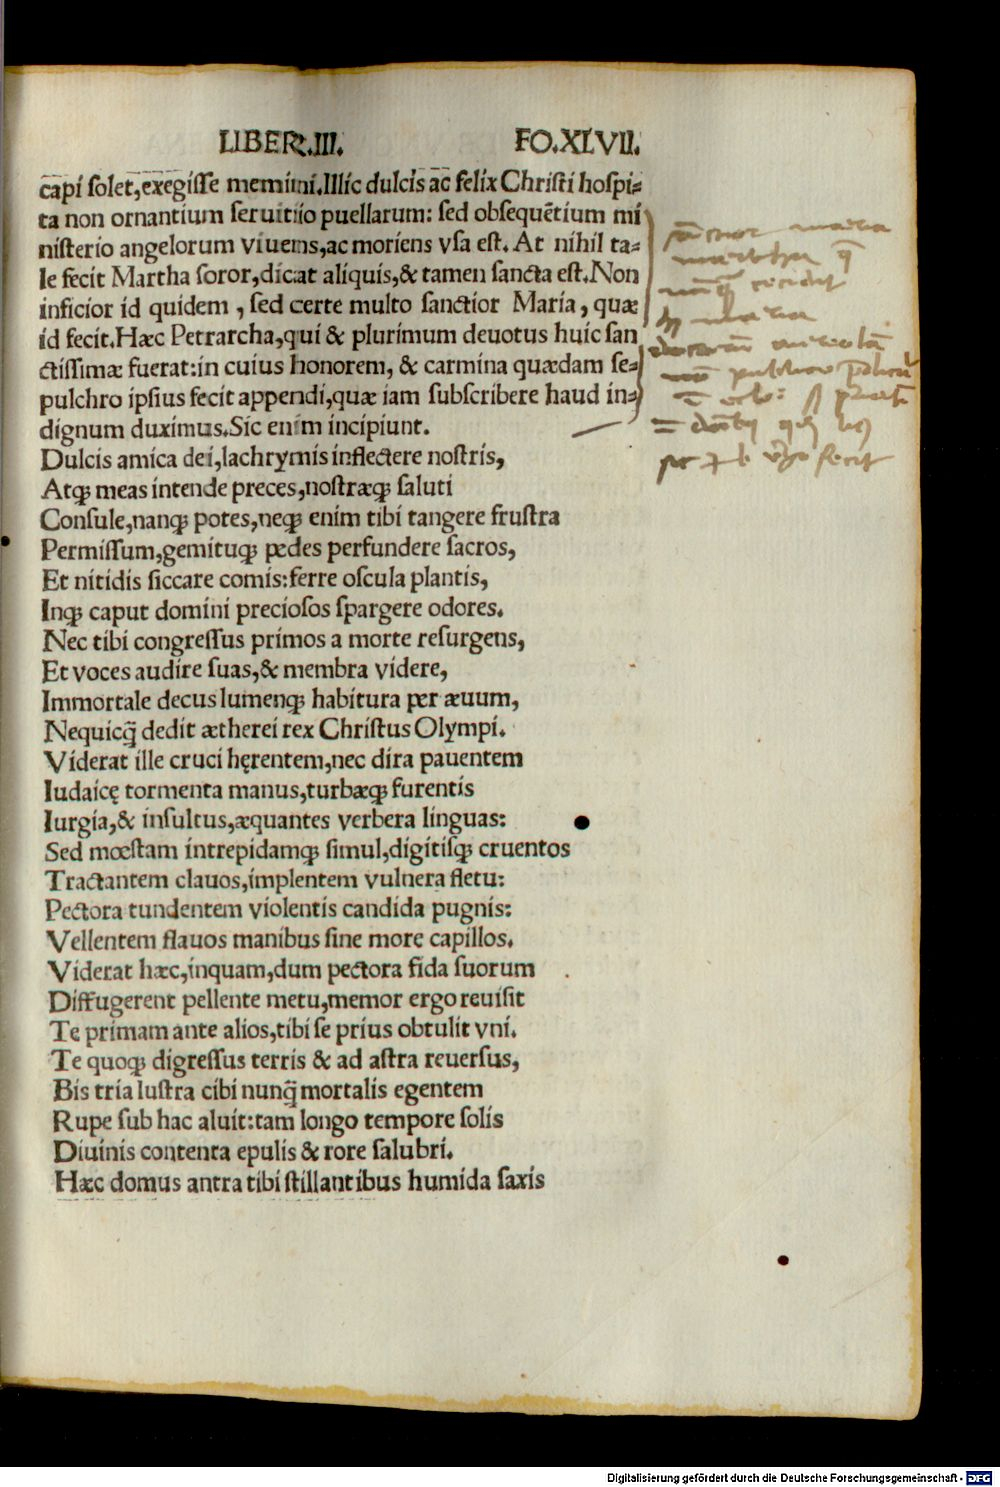 LIBER.III. FO.XLVII.
capi solet,exegisse memini.Illic dulcis ac felix Christi hospi⸗
ta non ornantium seruitiio puellarum: sed obsequētium mi
nisterio angelorum viuens,ac moriens vsa est. At nihil ta⸗
le fecit Martha soror,dicat aliquis,& tamen sancta est.Non
inficior id quidem , sed certe multo sanctior Maria, quæ
id fecit.Hæc Petrarcha,qui & plurimum deuotus huic san
ctissimæ fuerat:in cuius honorem, & carmina quædam se⸗
pulchro ipsius fecit appendi,quæ iam subscribere haud in⸗
dignum duximus.Sic enim incipiunt.
Dulcis amica dei,lachrymis inflectere nostris,
Atqꝫ meas intende preces,nostræqꝫ saluti
Consule,nanqꝫ potes,neqꝫ enim tibi tangere frustra
Permissum,gemituqꝫ pedes perfundere sacros,
Et nitidis siccare comis:ferre oscula plantis,
Inqꝫ caput domini preciosos spargere odores.
Nec tibi congressus primos a morte resurgens,
Et voces audire suas,& membra videre,
Immortale decus lumenqꝫ habitura per æuum,
Nequicq̃ dedit ætherei rex Christus Olympi.
Viderat ille cruci hęrentem,nec dira pauentem
Iudaicę tormenta manus,turbæqꝫ furentis
Iurgia,& insultus,æquantes verbera linguas:
Sed mœstam intrepidamqꝫ simul,digitisqꝫ cruentos
Tractantem clauos,implentem vulnera fletu:
Pectora tundentem violentis candida pugnis:
Vellentem flauos manibus sine more capillos.
Viderat hæc,inquam,dum pectora fida suorum
Diffugerent pellente metu,memor ergo reuisit
Te primam ante alios,tibi se prius obtulit vni.
Te quoqꝫ digressus terris & ad astra reuersus,
Bis tria lustra cibi nunq̃ mortalis egentem
Rupe sub hac aluit:tam longo tempore solis
Diuinis contenta epulis & rore salubri.
Hæc domus antra tibi stillantibus humida saxis
maria
martha
maria
fecit
Digitalisierung gefördert durch die Deutsche Forschungsgemeinschaft - DFG